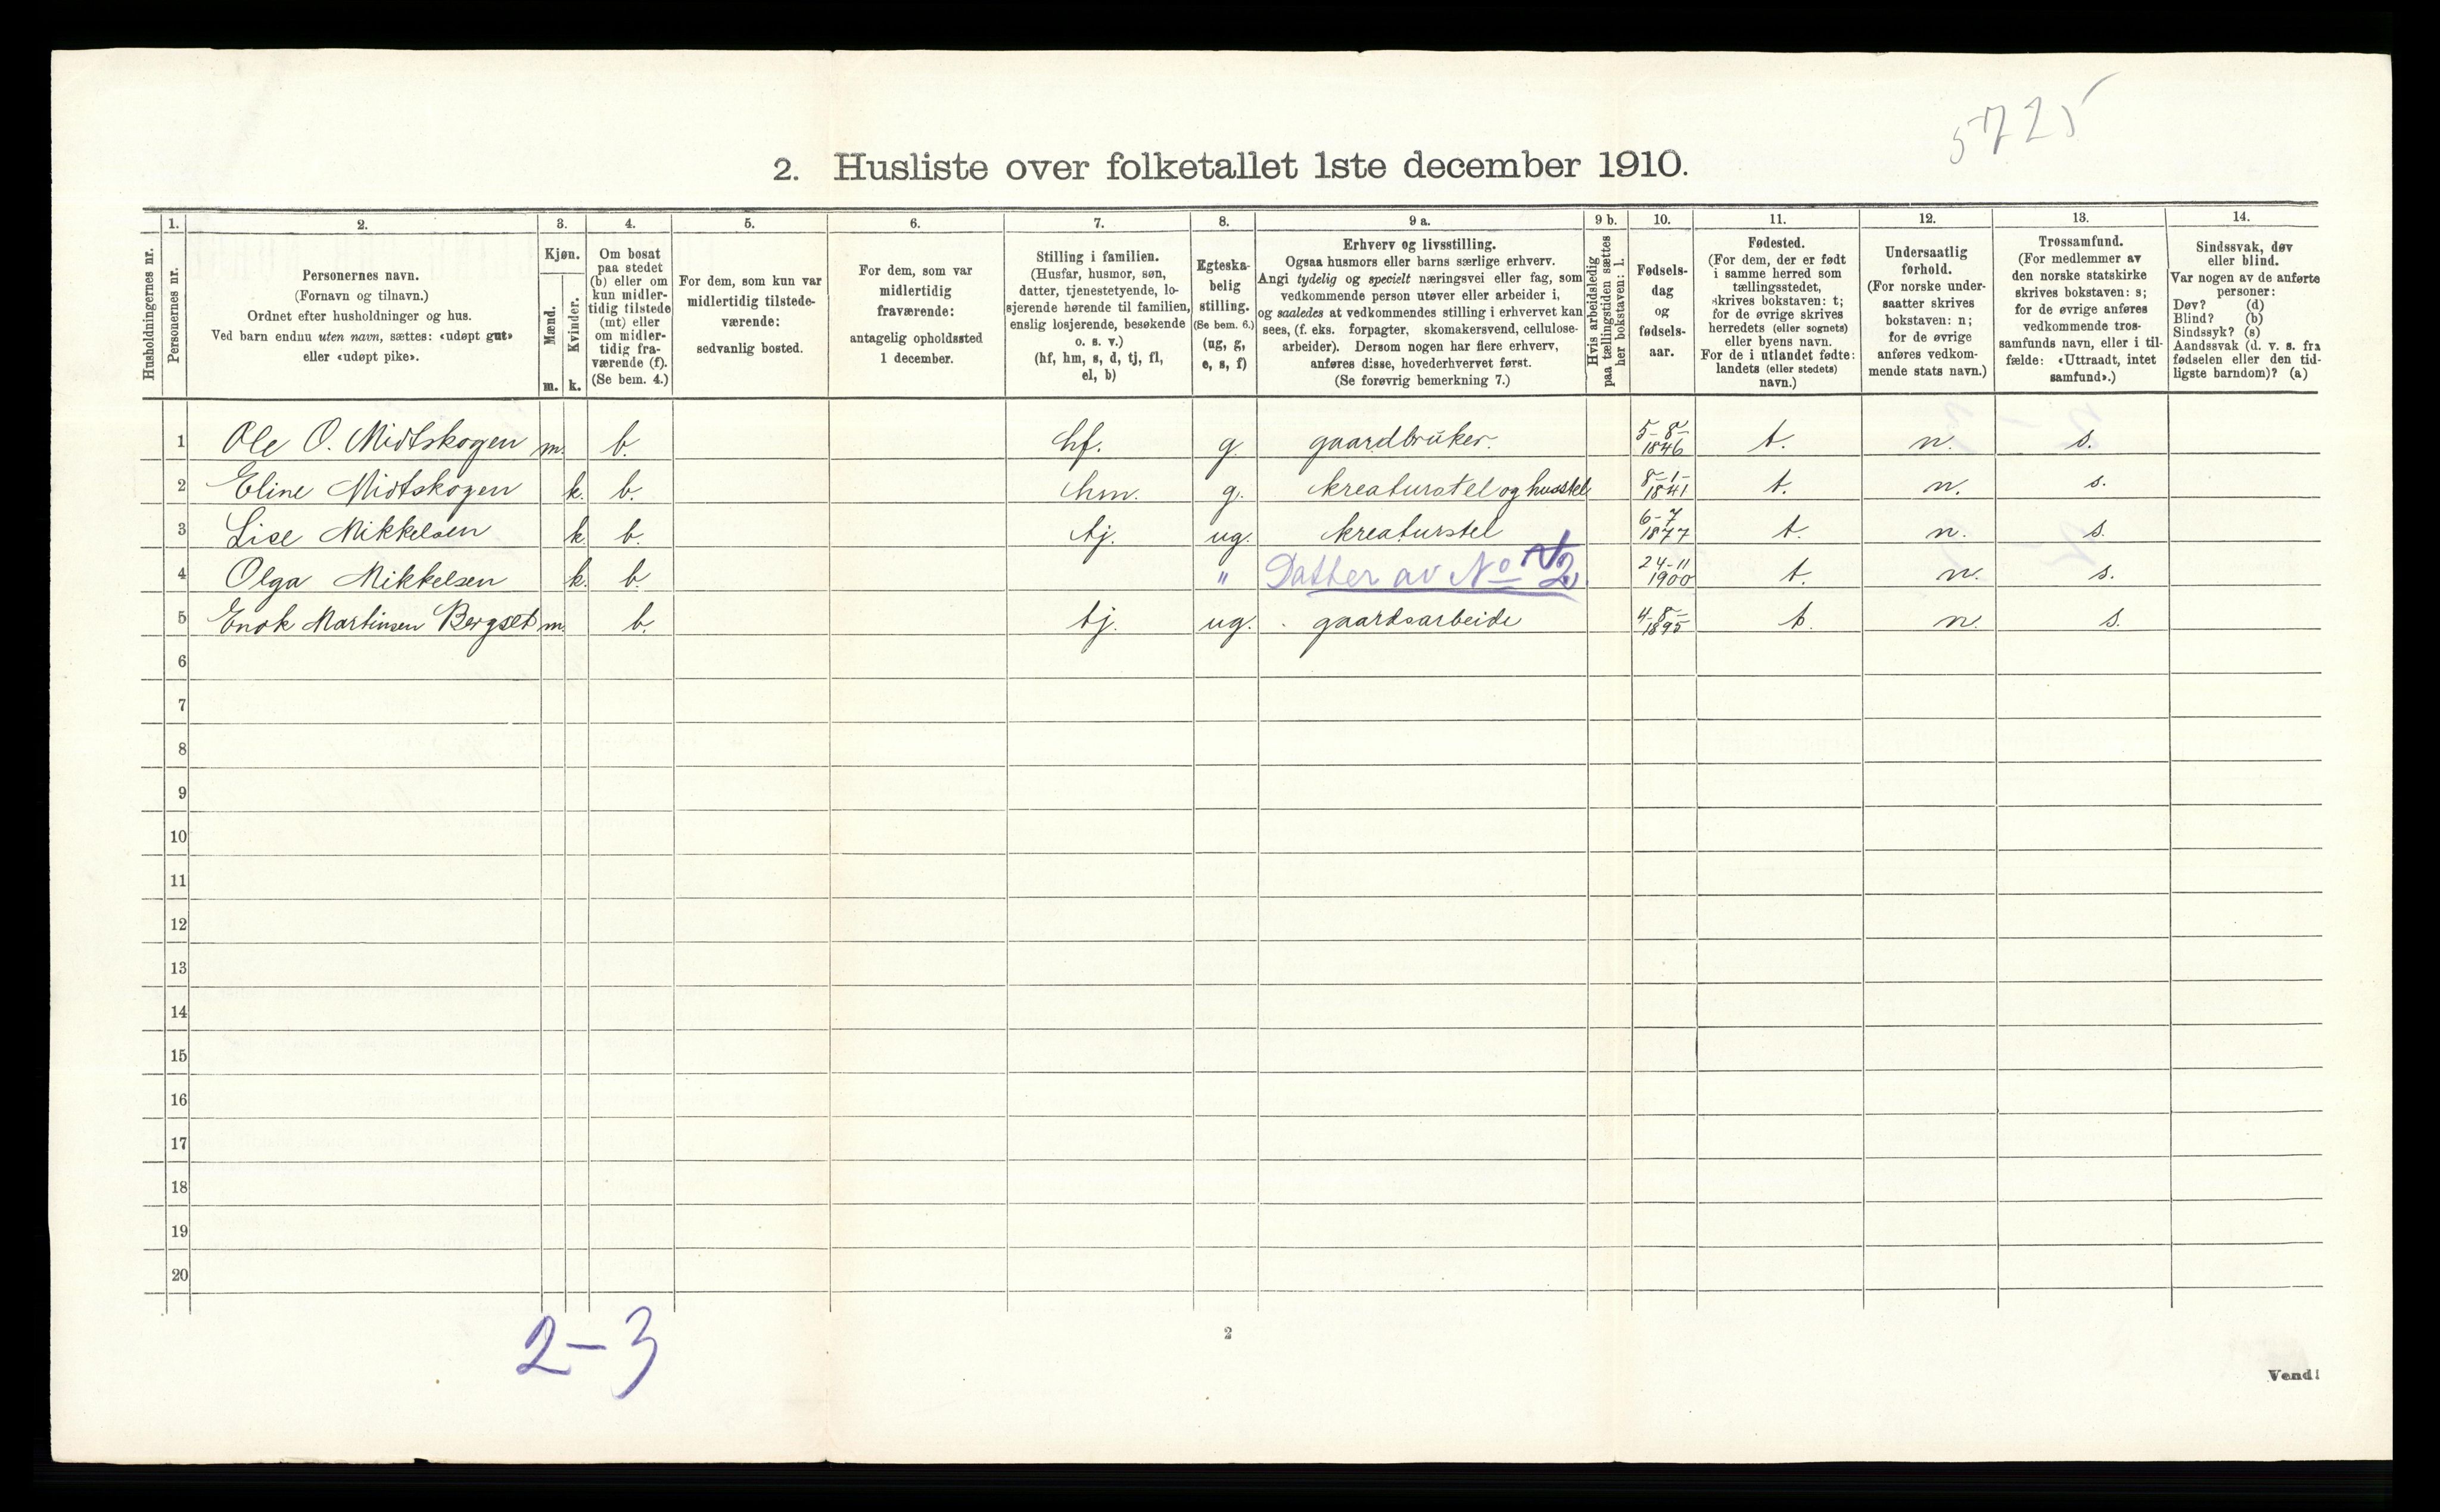 5725
2. Husliste over folketallet 1ste december 1910.
Husholdningernes nr.
1.
Personernes nr.
2.
Personernes navn.
(Fornavn og tilnavn.)
Ordnet efter husholdninger og hus.
Ved barn endnu uten navn, sættes: «udøpt gut»
eller «udøpt pike».
3.
Kjøn.
Mænd.
m.
Kvinder.
k.
4.
Om bosat
paa stedet
(b) eller om
kun midler-
tidig tilstede
(mt) eller
om midler-
tidig fra-
værende (f).
(Se bem. 4.)
5.
For dem, som kun var
midlertidig tilstede-
værende:
sedvanlig bosted.
6.
For dem, som var
midlertidig
fraværende:
antagelig opholdssted
1 december.
7.
Stilling i familien.
(Husfar, husmor, søn,
datter, tjenestetyende, lo-
sjerende hørende til familien,
enslig losjerende, besøkende
o. s. v.)
(hf, hm, s, d, tj, fl,
el, b)
8.
Egteska-
belig
stilling.
(Se bem. 6.)
(ug, g,
e, s, f)
9 a.
Erhverv og livsstilling.
Ogsaa husmors eller barns særlige erhverv.
Angi tydelig og specielt næringsvei eller fag, som
vedkommende person utøver eller arbeider i,
og saaledes at vedkommendes stilling i erhvervet kan
sees, (f. eks. forpagter, skomakersvend, cellulose-
arbeider). Dersom nogen har flere erhverv,
anføres disse, hovederhvervet først.
(Se forøvrig bemerkning 7.)
9 b.
Hvis arbeidsledig
paa tællingstiden sættes
her bokstaven: l.
10.
Fødsels-
dag
og
fødsels-
aar.
11.
Fødested.
(For dem, der er født
i samme herred som
tællingsstedet,
skrives bokstaven: t;
for de øvrige skrives
herredets (eller sognets)
eller byens navn.
For de i utlandet fødte:
landets (eller stedets)
navn.)
12.
Undersaatlig
forhold.
(For norske under-
saatter skrives
bokstaven: n;
for de øvrige
anføres vedkom-
mende stats navn.)
13.
Trossamfund.
(For medlemmer av
den norske statskirke
skrives bokstaven: s;
for de øvrige anføres
vedkommende tros-
samfunds navn, eller i til-
fælde: «Uttraadt, intet
samfund».)
14.
Sindssvak, døv
eller blind.
Var nogen av de anførte
personer:
Døv? (d)
Blind? (b)
Sindssyk? (s)
Aandssvak (d. v. s. fra
fødselen eller den tid-
ligste barndom)? (a)
1 Ole O. Midtskogen m. b. hf. g. gaardbruker. 5-8-1846 t. n. s.
2 Eline Midtskogen k. b. hm. g. kreaturstel og husstel 8-1-1841 t. n. s.
3 Lise Mikkelsen k. b. tj. ug. kreaturstel 6-7 1877 t. n. s.
4 Olga Mikkelsen k. b. " Datter av No 2. 24-11 1900 t. n. s.
5 Enok Martinsen Bergset m. b. tj. ug. gaardsarbeide 4-8-1895 t. n. s.
6
7
8
9
10
11
12
13
14
15
16
17
18
19
20
2-3
2
Vend!